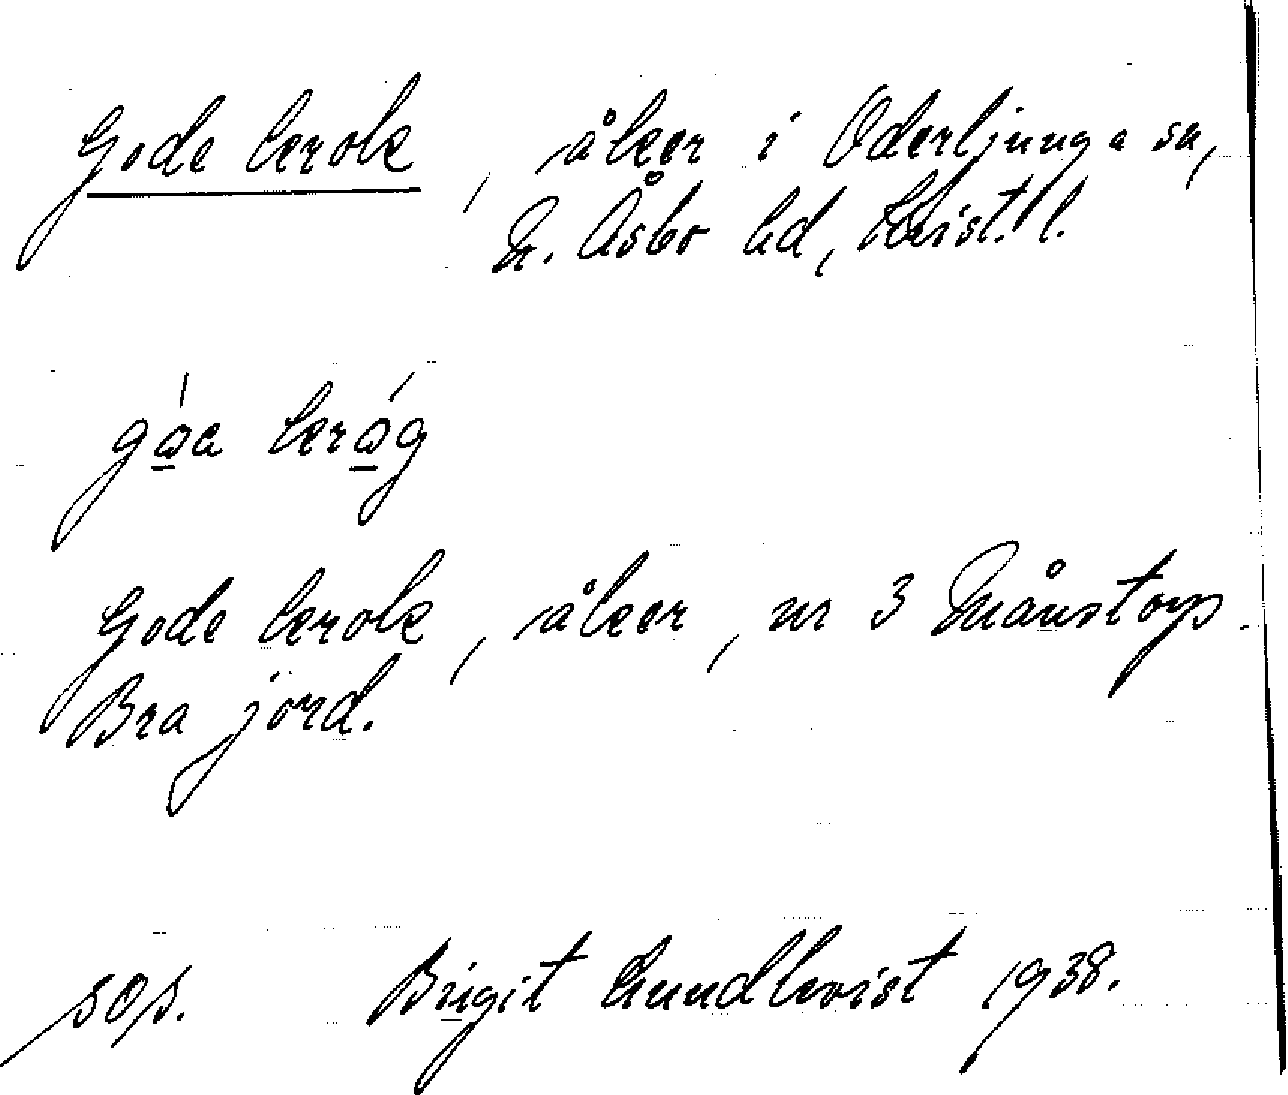 Gode krok, åker i Oderljunga sn,
N. Åsbo hd, Krist. l.
gọ́a krọ́g
Gode krok, åker, nr 3 Månstorp.
Bra jord.
sos. Birgit Lundkvist 1938.